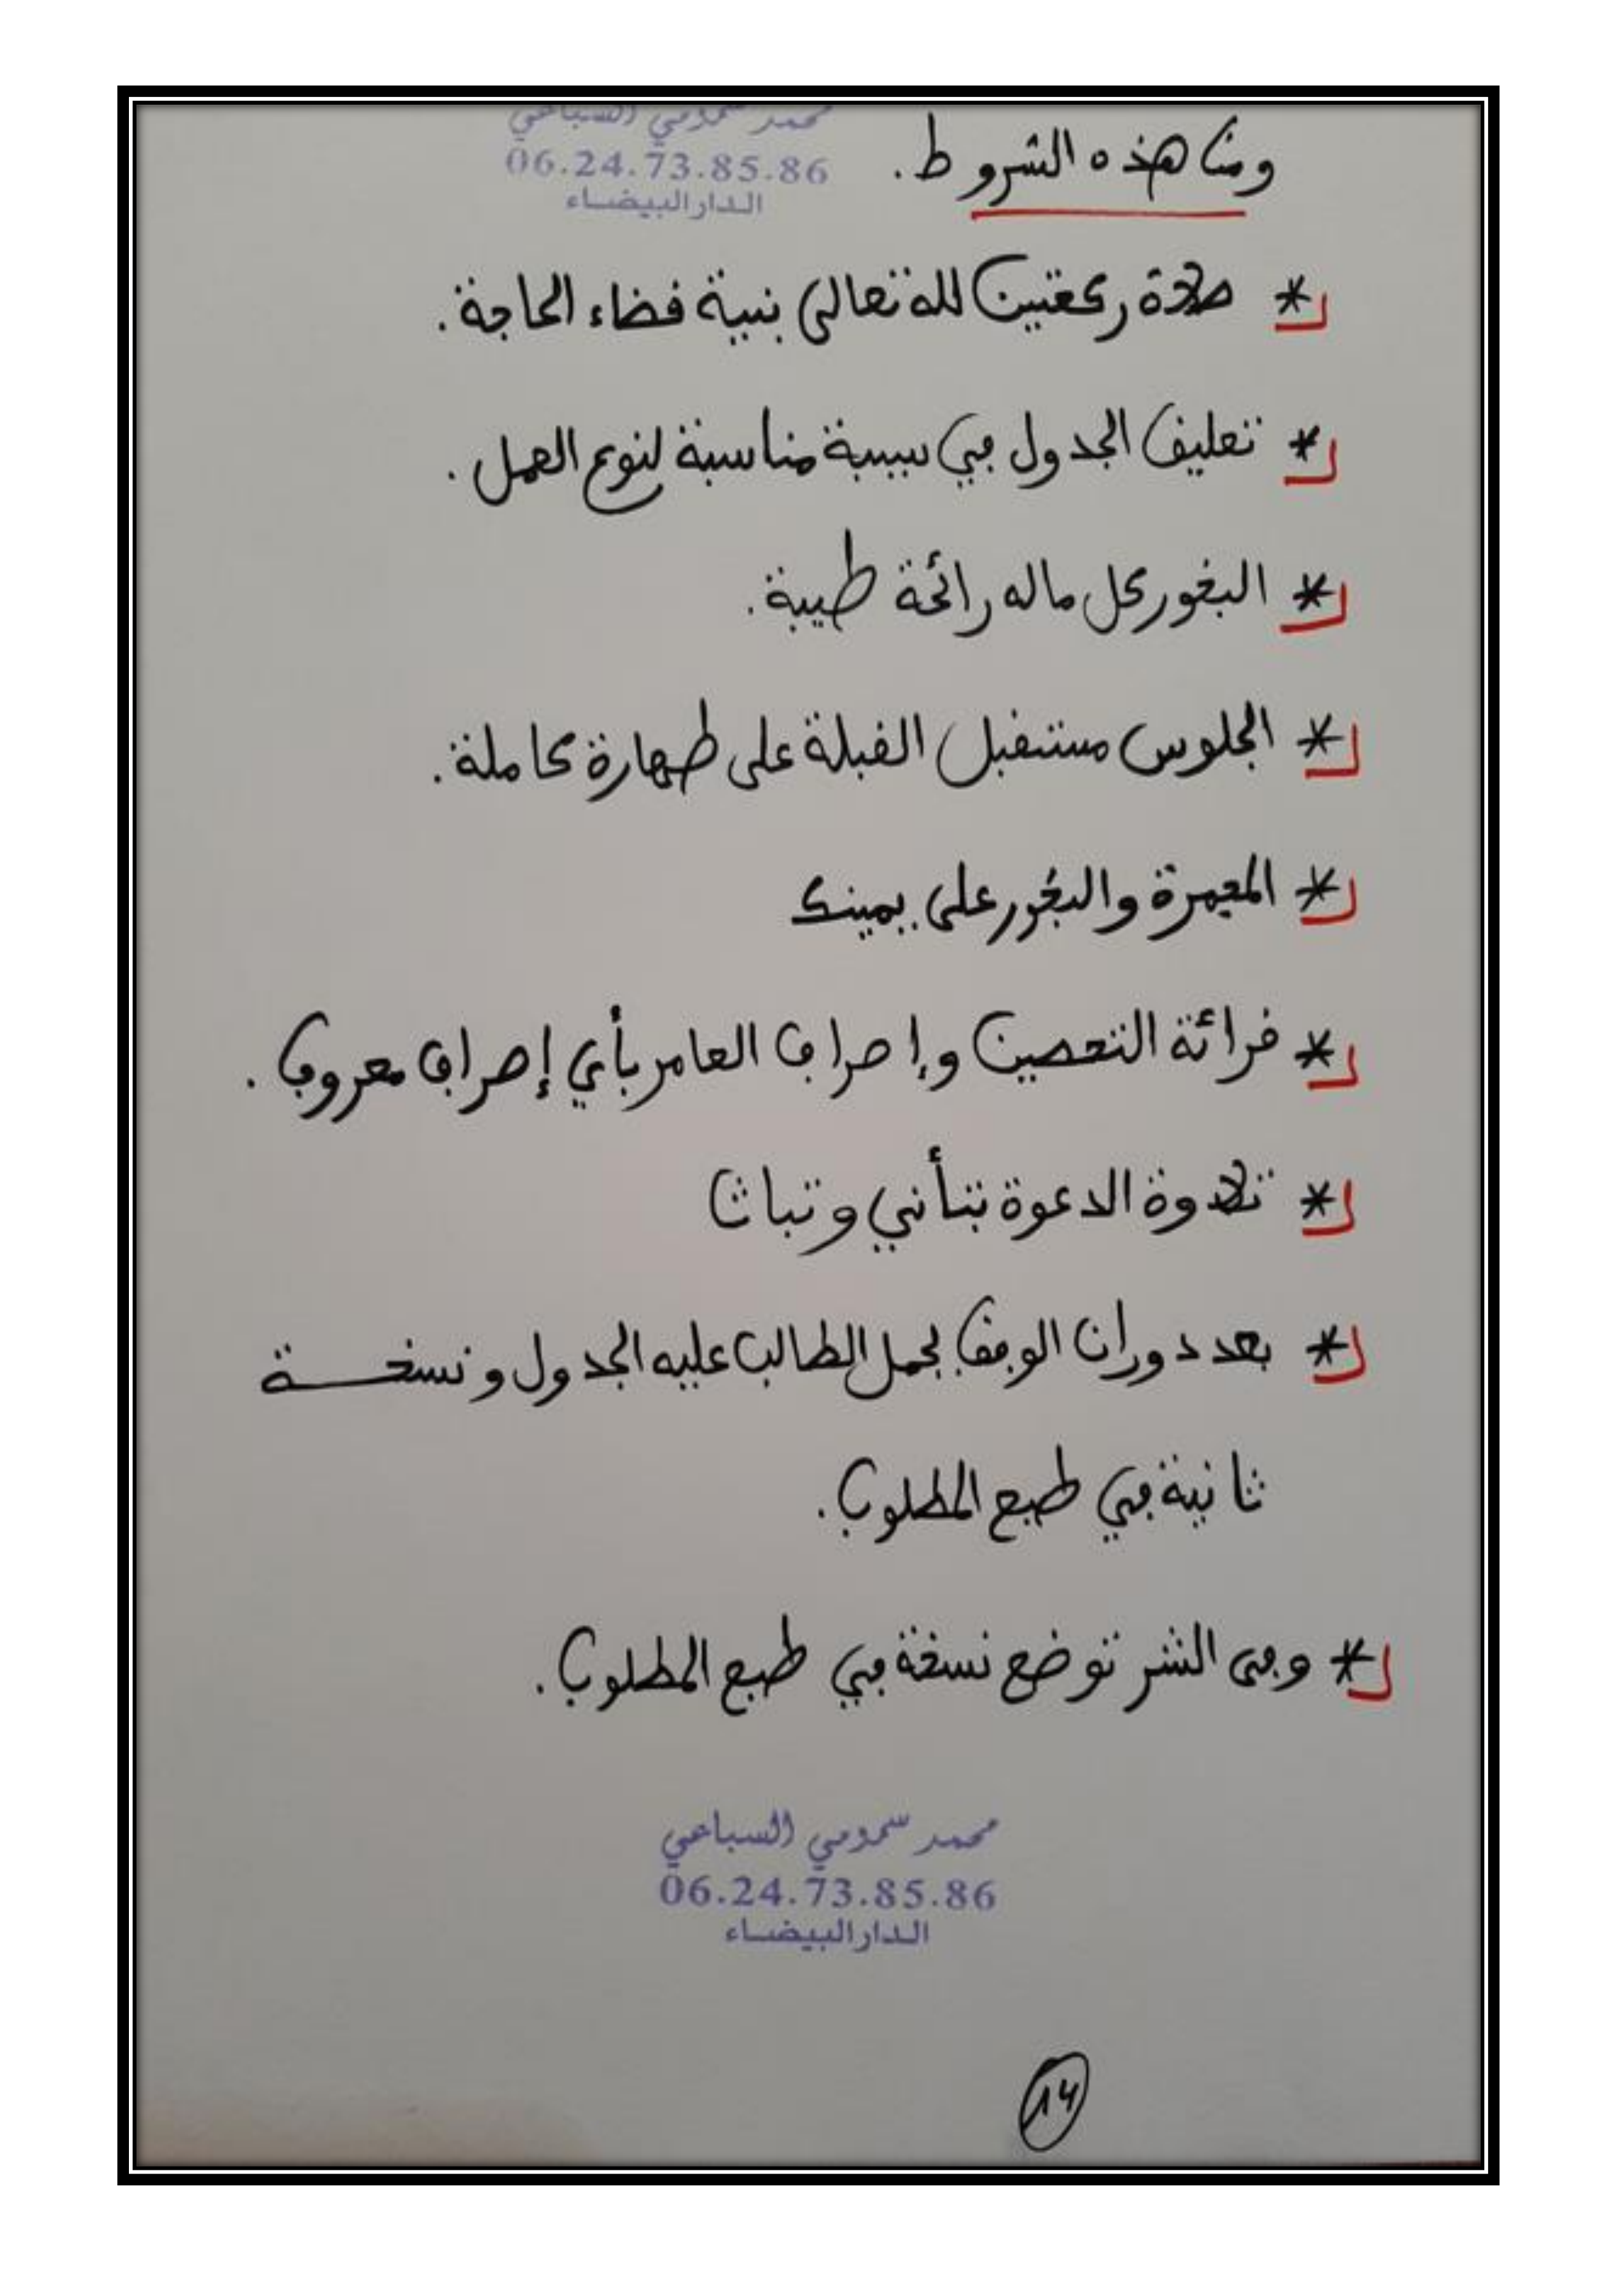 محمد سمومي السباعي
06.24.73.85.86
الدار البيضاء
ومن هذه الشروط.
* صلاة ركعتين لله تعالى بنية قضاء الحاجة.
* تعليق الجدول في سبيبة مناسبة لنوع العمل.
* البخور كل ماله رائحة طيبة.
* الجلوس مستقبل القبلة على طهارة كاملة.
* المجمرة والبخور على يمينك
* قرائة التحصين وإصراف العامر بأي إصراف معروف.
* تلاوة الدعوة بتأني وتباث
* بعد دوران الوفق يحمل الطالب عليه الجدول ونسخة
ثانية في طبع المطلوب.
* وفى الشر توضع نسخة في طبع المطلوب.
محمد سمومي السباعي
06.24.73.85.86
الدار البيضاء
14